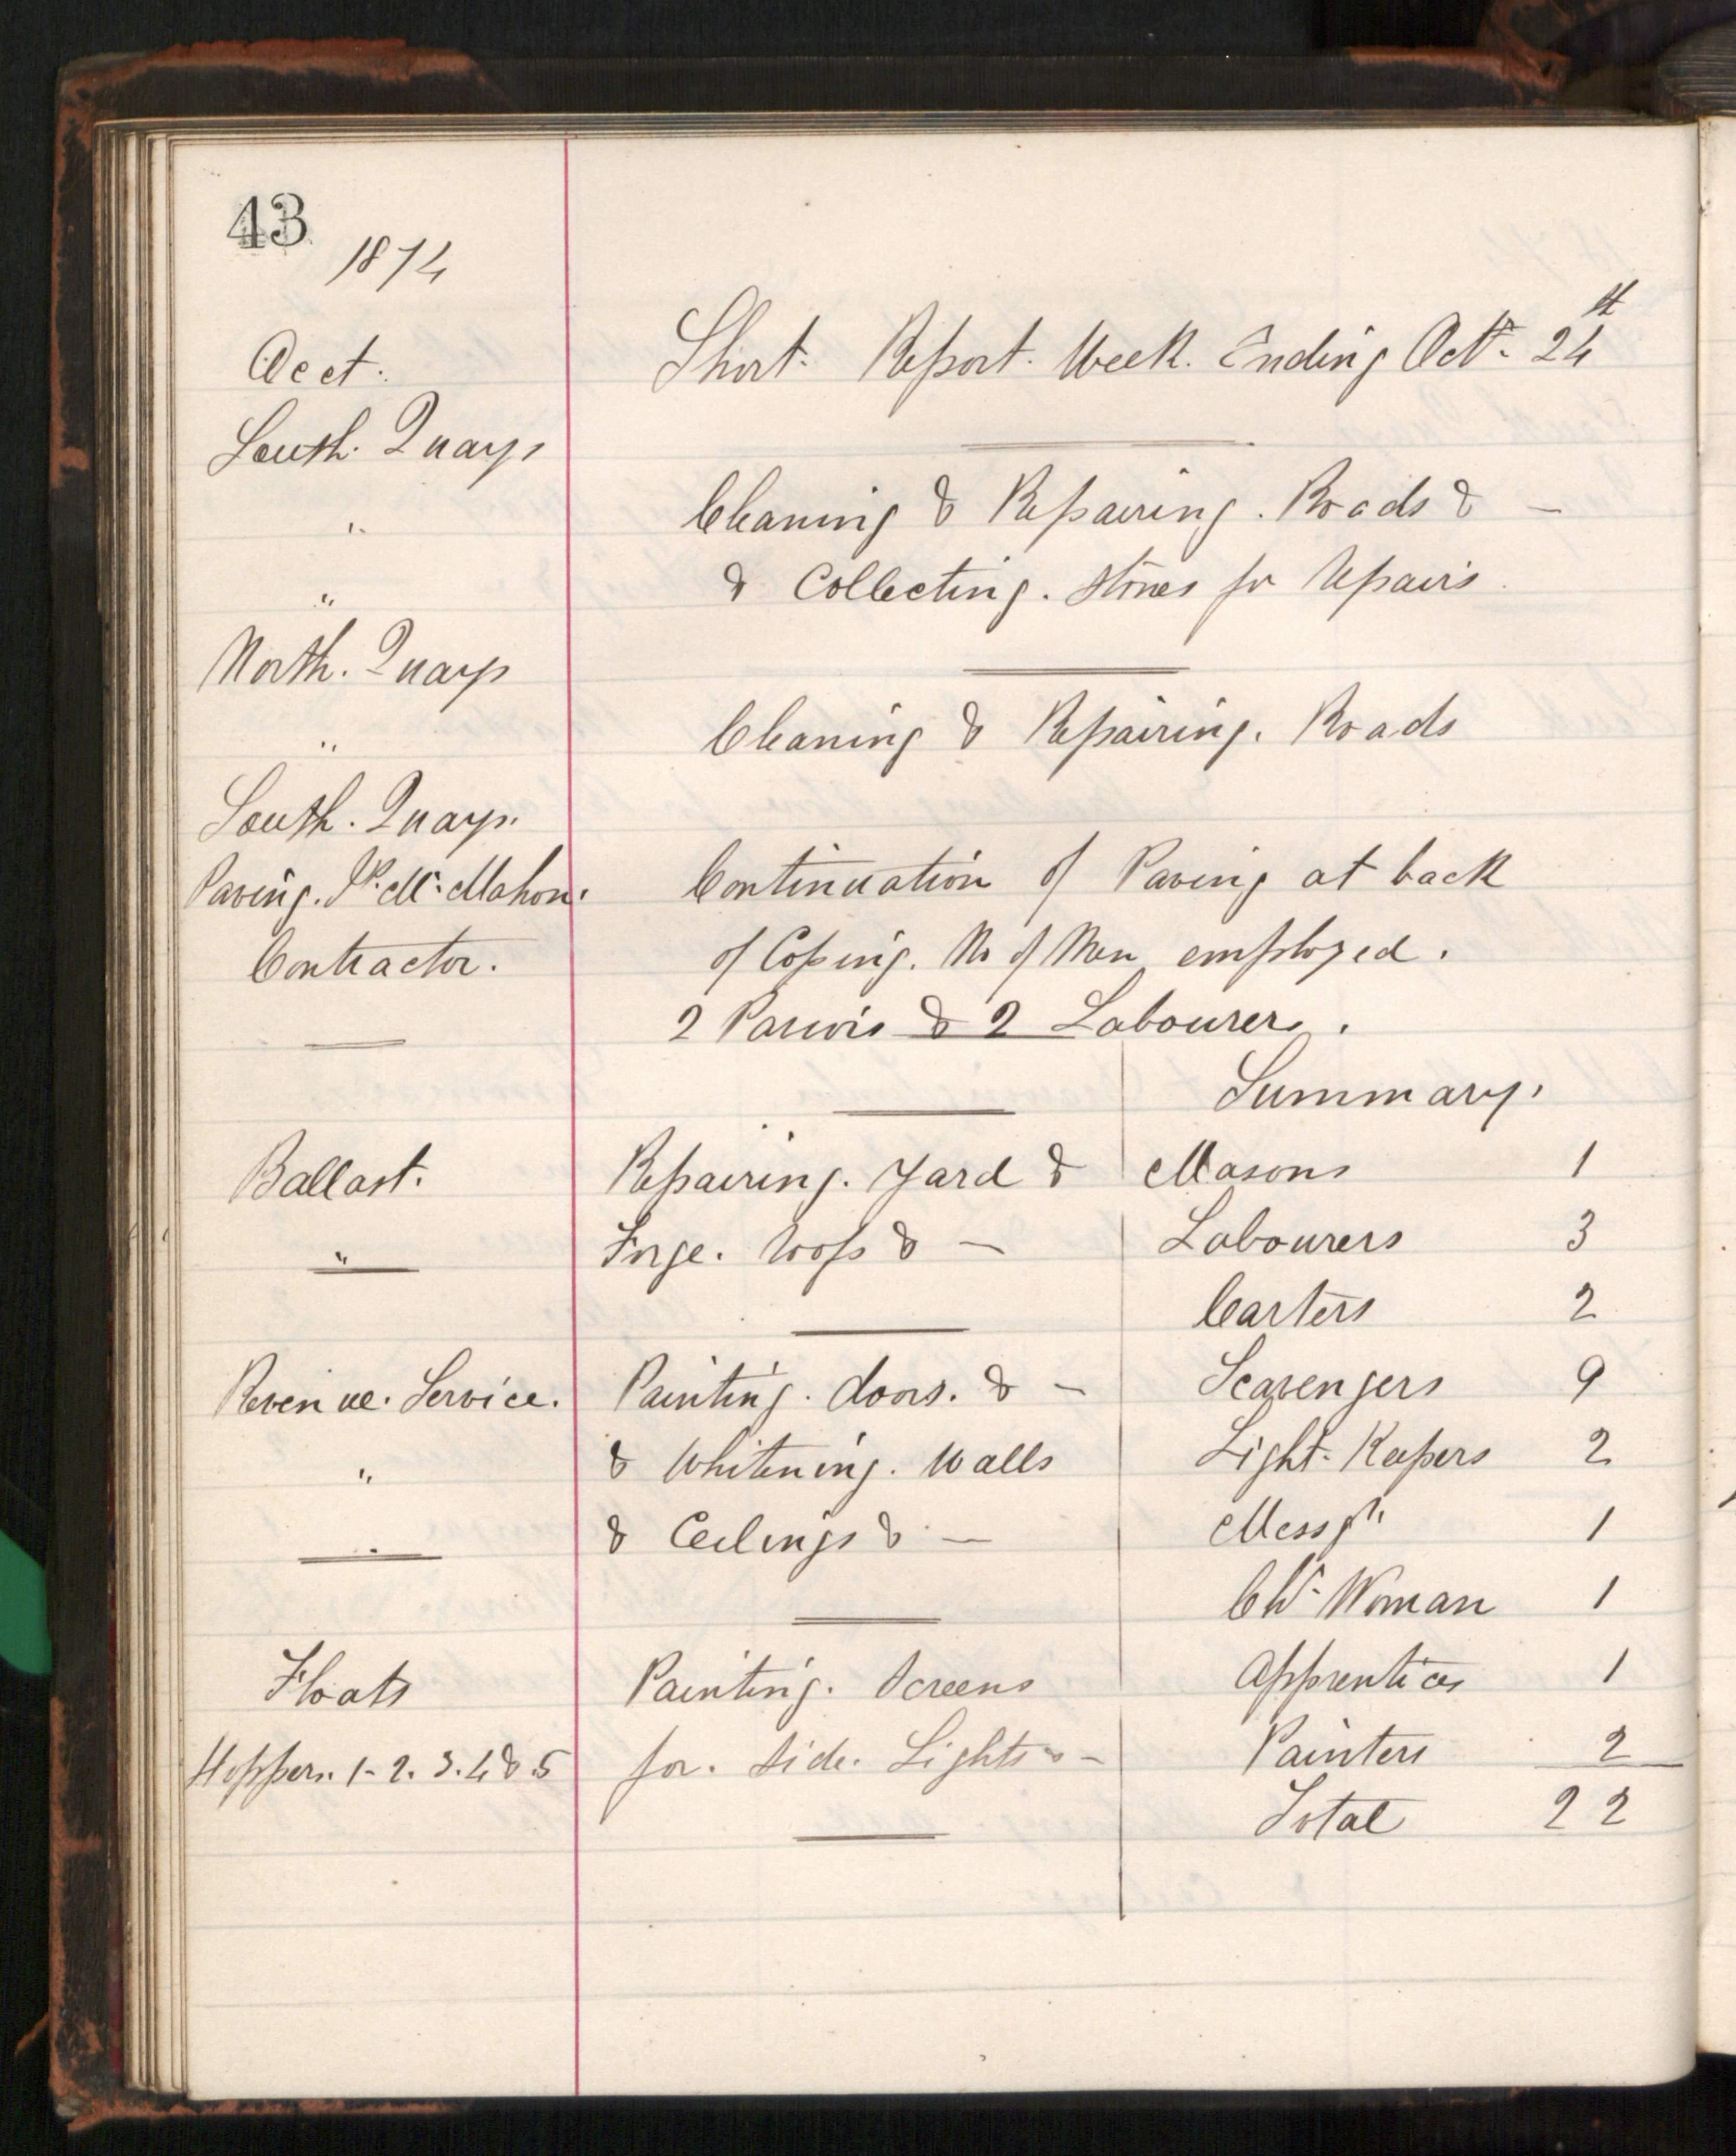 43
1874
Acct.
Short Report Week Ending Octr. 24th
South Quays
Cleaning & Repairing Roads & —
"
& Collecting Stones for Repairs
"
North Quays
Cleaning & Repairing Roads
"
South Quays
Paving. Mc. Mahon.
Continuation of Paving at back
Contractor.
of Coping. No of Men employed.
2 Paviors & 2 Labourers.
Summary.
Ballast.
Repairing Yard &
Masons 1
"
Forge &  —
Labourers 3
Carters 2
Revenue Service.
Painting doors &  —
Scavengers 9
"
& Whitening Walls
Light Keepers 2
"
& Ceilings &  —
Messgr 1
Woman 1
Floats
Painting Screens
Apprentices 1
Hoppers 1-2.3.4 & 5
for Side Lights —
Painters 2
Total 22